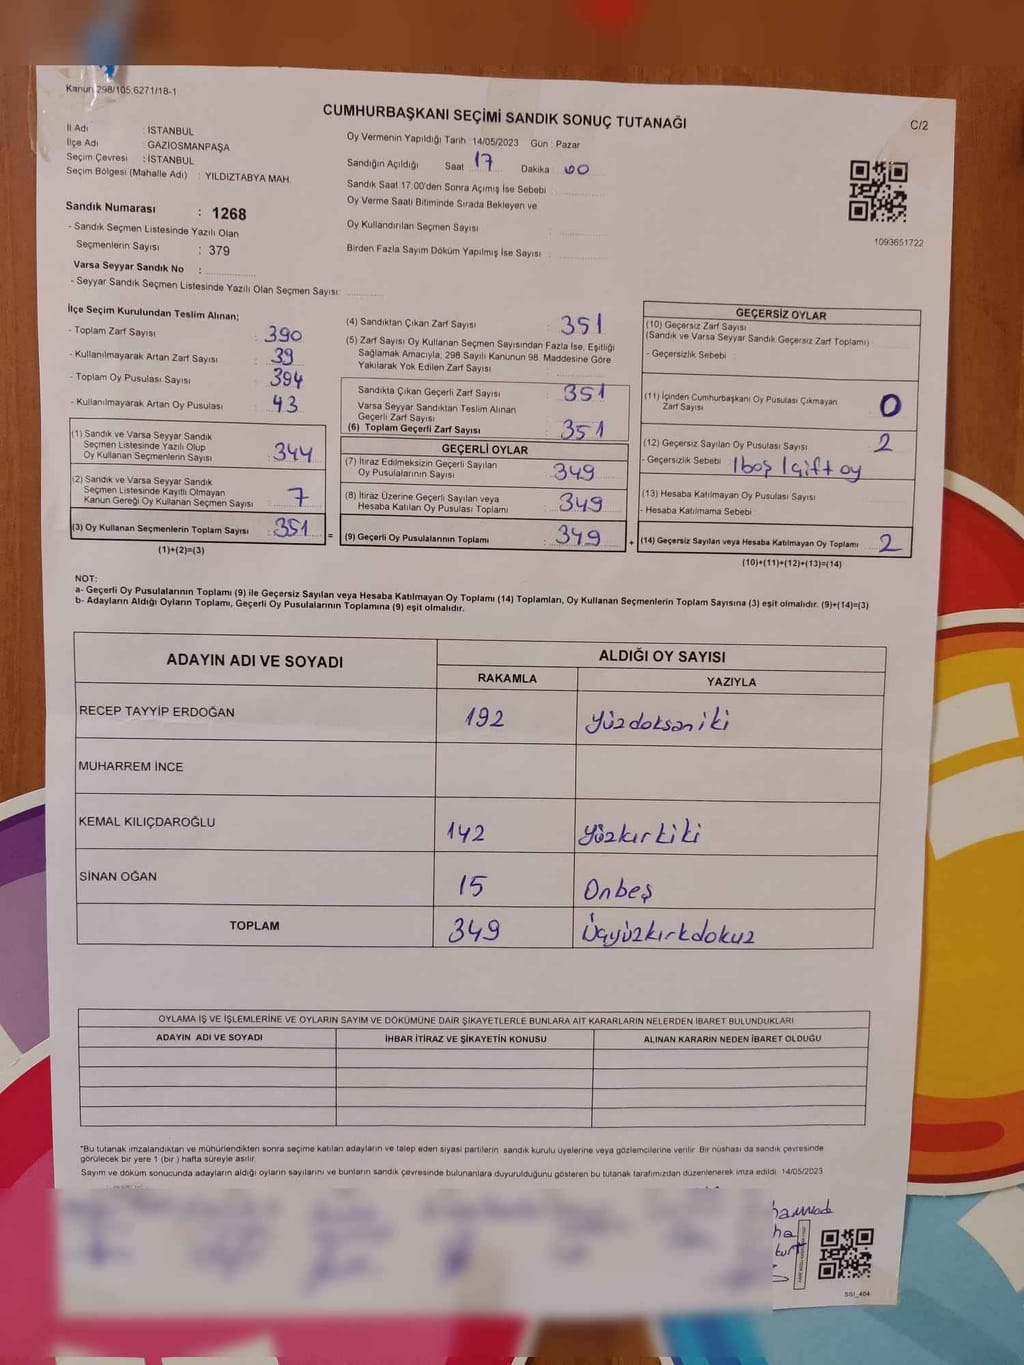 Kanun 298/105,6271/18-1
CUMHURBAŞKANI SEÇİMİ SANDIK SONUÇ TUTANAĞI
C/2
İl Adı : İSTANBUL
İlçe Adı : GAZİOSMANPAŞA
Seçim Çevresi : İSTANBUL
Seçim Bölgesi (Mahalle Adı) : YILDIZTABYA MAH.
Sandık Numarası : 1268
- Sandık Seçmen Listesinde Yazılı Olan
Seçmenlerin Sayısı : 379
Varsa Seyyar Sandık No :
- Seyyar Sandık Seçmen Listesinde Yazılı Olan Seçmen Sayısı:
Oy Vermenin Yapıldığı Tarih : 14/05/2023 Gün : Pazar
Sandığın Açıldığı Saat 17 Dakika 00
Sandık Saat 17.00'den Sonra Açımış İse Sebebi :
Oy Verme Saati Bitiminde Sırada Bekleyen ve
Oy Kullandırılan Seçmen Sayısı :
Birden Fazla Sayım Döküm Yapılmış İse Sayısı :
1093651722
İlçe Seçim Kurulundan Teslim Alınan;
- Toplam Zarf Sayısı : 390
- Kullanılmayarak Artan Zarf Sayısı : 39
- Toplam Oy Pusulası Sayısı : 394
- Kullanılmayarak Artan Oy Pusulası : 43
(1) Sandık ve Varsa Seyyar Sandık
Seçmen Listesinde Yazılı Olup
Oy Kullanan Seçmenlerin Sayısı : 344
(2) Sandık ve Varsa Seyyar Sandık
Seçmen Listesinde Kayıtlı Olmayan
Kanun Gereği Oy Kullanan Seçmen Sayısı : 7
(3) Oy Kullanan Seçmenlerin Toplam Sayısı : 351 =
(1)+(2)=(3)
(4) Sandıktan Çıkan Zarf Sayısı : 351
(5) Zarf Sayısı Oy Kullanan Seçmen Sayısından Fazla İse, Eşitliği
Sağlamak Amacıyla; 298 Sayılı Kanunun 98. Maddesine Göre
Yakılarak Yok Edilen Zarf Sayısı :
Sandıkta Çıkan Geçerli Zarf Sayısı : 351
Varsa Seyyar Sandıktan Teslim Alınan
Geçerli Zarf Sayısı :
(6) Toplam Geçerli Zarf Sayısı : 351
GEÇERLİ OYLAR
(7) İtiraz Edilmeksizin Geçerli Sayılan
Oy Pusulalarının Sayısı : 349
(8) İtiraz Üzerine Geçerli Sayılan veya
Hesaba Katılan Oy Pusulası Toplamı : 349
(9) Geçerli Oy Pusulalarının Toplamı : 349 +
GEÇERSİZ OYLAR
(10) Geçersiz Zarf Sayısı
(Sandık ve Varsa Seyyar Sandık Geçersiz Zarf Toplamı)
- Geçersizlik Sebebi :
(11) İçinden Cumhurbaşkanı Oy Pusulası Çıkmayan
Zarf Sayısı : 0
(12) Geçersiz Sayılan Oy Pusulası Sayısı : 2
- Geçersizlik Sebebi : 1boş 1çift oy
(13) Hesaba Katılmayan Oy Pusulası Sayısı :
- Hesaba Katılmama Sebebi :
(14) Geçersiz Sayılan veya Hesaba Katılmayan Oy Toplamı : 2
(10)+(11)+(12)+(13)=(14)
NOT:
a- Geçerli Oy Pusulalarının Toplamı (9) ile Geçersiz Sayılan veya Hesaba Katılmayan Oy Toplamı (14) Toplamları, Oy Kullanan Seçmenlerin Toplam Sayısına (3) eşit olmalıdır. (9)+(14)=(3)
b- Adayların Aldığı Oyların Toplamı, Geçerli Oy Pusulalarının Toplamına (9) eşit olmalıdır.
ADAYIN ADI VE SOYADI
ALDIĞI OY SAYISI
RAKAMLA YAZIYLA
RECEP TAYYİP ERDOĞAN 192 Yüzdoksaniki
MUHARREM İNCE
KEMAL KILIÇDAROĞLU 142 Yüzkırkiki
SİNAN OĞAN 15 Onbeş
TOPLAM 349 Üçyüzkırkdokuz
OYLAMA İŞ VE İŞLEMLERİNE VE OYLARIN SAYIM VE DÖKÜMÜNE DAİR ŞİKAYETLERLE BUNLARA AİT KARARLARIN NELERDEN İBARET BULUNDUKLARI
ADAYIN ADI VE SOYADI İHBAR İTİRAZ VE ŞİKAYETİN KONUSU ALINAN KARARIN NEDEN İBARET OLDUĞU
*Bu tutanak imzalandıktan ve mühürlendikten sonra seçime katılan adayların ve talep eden siyasi partilerin sandık kurulu üyelerine veya gözlemcilerine verilir. Bir nüshası da sandık çevresinde
görülecek bir yere 1 (bir ) hafta süreyle asılır.
Sayım ve döküm sonucunda adayların aldığı oyların sayılarını ve bunların sandık çevresinde bulunanlara duyurulduğunu gösteren bu tutanak tarafımızdan düzenlenerek imza edildi. 14/05/2023
SSI_404